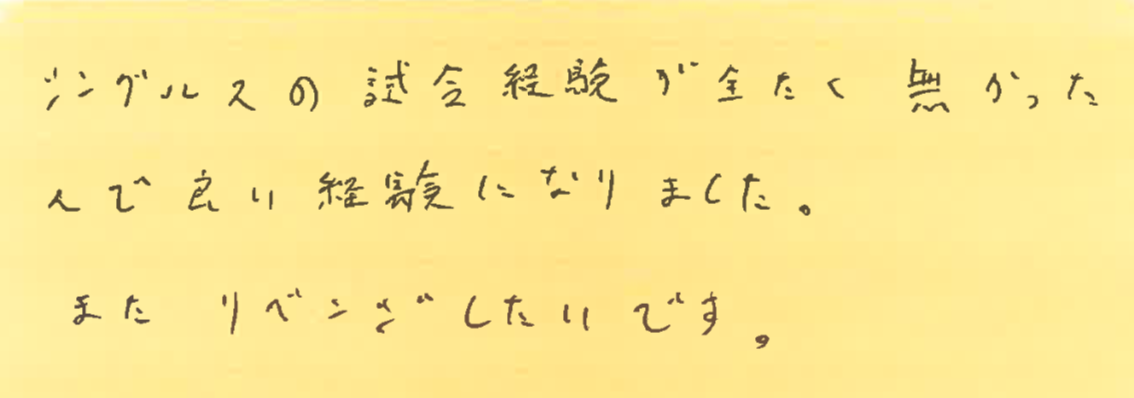 シングルスの試合経験が全たく無かった
んで良い経験になりました。
またリベンジしたいです。